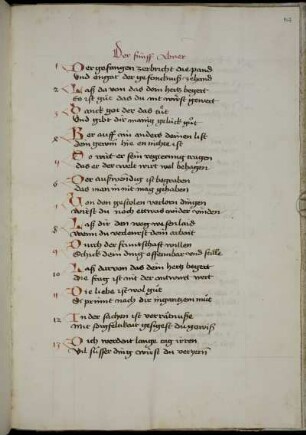 Der fünff Abner
1 Der gefangen zerbricht die pand
Und der gefencknuß schand
2 Laß da von das dem hertz begert
Es ist güt das du nit würst gewert
3 Danck got der das tüt
Und gibt dir manig gelück güt
4 Ker auff ein anders deinen list
dem gewin hie en nichte ist
5 So wirt er sein regierung tragen
das er der welt wirt wol behagen
6 Der auffwendig ist begraben
das man in nit mag gehaben
7 Von den gestolen verlorn dingen
wirst du noch etwas wider vinden
8 Laß dir den weg
Wenn du verleurest dein arbeit
9 Durch der fruntschafft willen
Schick dein ding offenbar und stille
10 Laß darvon das dein hertz begert
die frag ist nit der antwort wert
11 Die liebe ist wol güt
Es prinnt nach dir mut
12 In der sachen ist
Mit gefügest du gewiß
13 Dich werdent lange tag irren
Vil süsser ding würst du